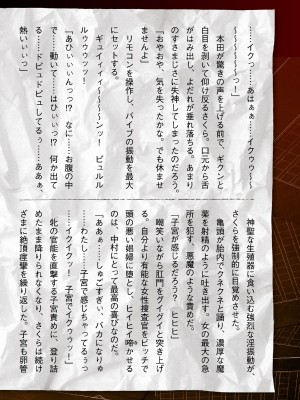 「……イクっ……あはぁぁ……イクゥゥ～～
～～～～～～っ！」
　本田が驚きの声を上げる前で、ギクンと
白目を剥いて仰け反るさくら。口元から舌
がはみ出し、よだれが垂れ落ちる。あまり
のすさまじさに失神してしまったのだろう。
「おやおや、気を失ったかな。でも休ませ
ませんよ」
　リモコンを操作し、バイブの振動を最大
にセットする。
　ギュイィィィ～～～ンッ！　ビュルル
ルゥゥゥッ！
「あひぃぃぃんっっ!?　なに……お腹の中
で……動いて……はひぃぃっ!?　何か出て
る……ドビュドビュしてるぅ……ああぁ、
熱いぃぃっ」
　神聖な生殖器に食い込む強烈な淫振動が、
さくらを強制的に目覚めさせた。
　亀頭が胎内でクネクネと踊り、濃厚な魔
薬を射精のように吐き出す。女の最大の急
所を犯す、悪魔のような責めだ。
「子宮が感じるだろう？　ヒヒヒ」
　嘲笑いながら肛門をグイグイと突き上げ
る。自分より有能な女性捜査官をビッチで
頭の悪い娼婦に堕とし、ヒイヒイ啼かせる
のは、中村にとって最高の喜びなのだ。
「ああぁ……しゅごすぎぃ、バカになりゅ
……わたし……子宮で感じちゃってるぅっ
……イクイクッ！　子宮でイクゥゥッ！」
　牝の官能を直撃する子宮責めに、登り詰
めたまま降りられなくなり、さくらは続け
ざまに絶頂痙攣を繰り返した。子宮も卵管